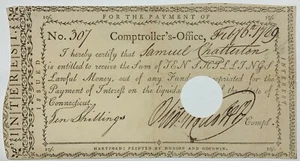 FOR THE PAYMENT OF
No. 307 Comptroller's-Office, Feb 6th 1789
I hereby certify that Samuel Chatterton
is entitled to receive the Sum of TEN SHILLINGS
Lawful Money, out of any Funds appropriated for the
Payment of Interest on the liquidated of
Connecticut,
Ten Shillings Compt.
HARTFORD: PRINTED BY HUDSON AND GOODWIN.
INTEREST
ISSUED